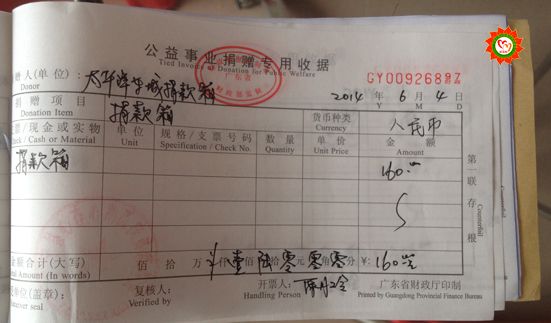 公益事业捐赠专用收据
Tied Invoice of Donation for Public Welfare
广东省
财政部监制
GY009268
赠人(单位): 捐款箱
Donor
2014 年 6 月 4 日
Y M D
捐赠项目
Donation Item
捐款箱
货币种类
Currency
人民币
票/现金或实物
Check / Cash or Material
单位
Unit
规格/支票号码
Specification / Check No.
数量
Quantity
单价
Unit Price
金额
Amount
捐款箱
160.00
第一联 存根
Counterfoil
金额合计(大写)
Total Amount (In words)
佰 拾 万 仟 壹 佰 陆 拾 零 元 零 角 零 分 ¥: 160.00
单位(盖章):
Receiver seal
复核人:
Verified by
开票人:
Handling Person
广东省财政厅印制
Printed by Guangdong Provincial Finance Bureau